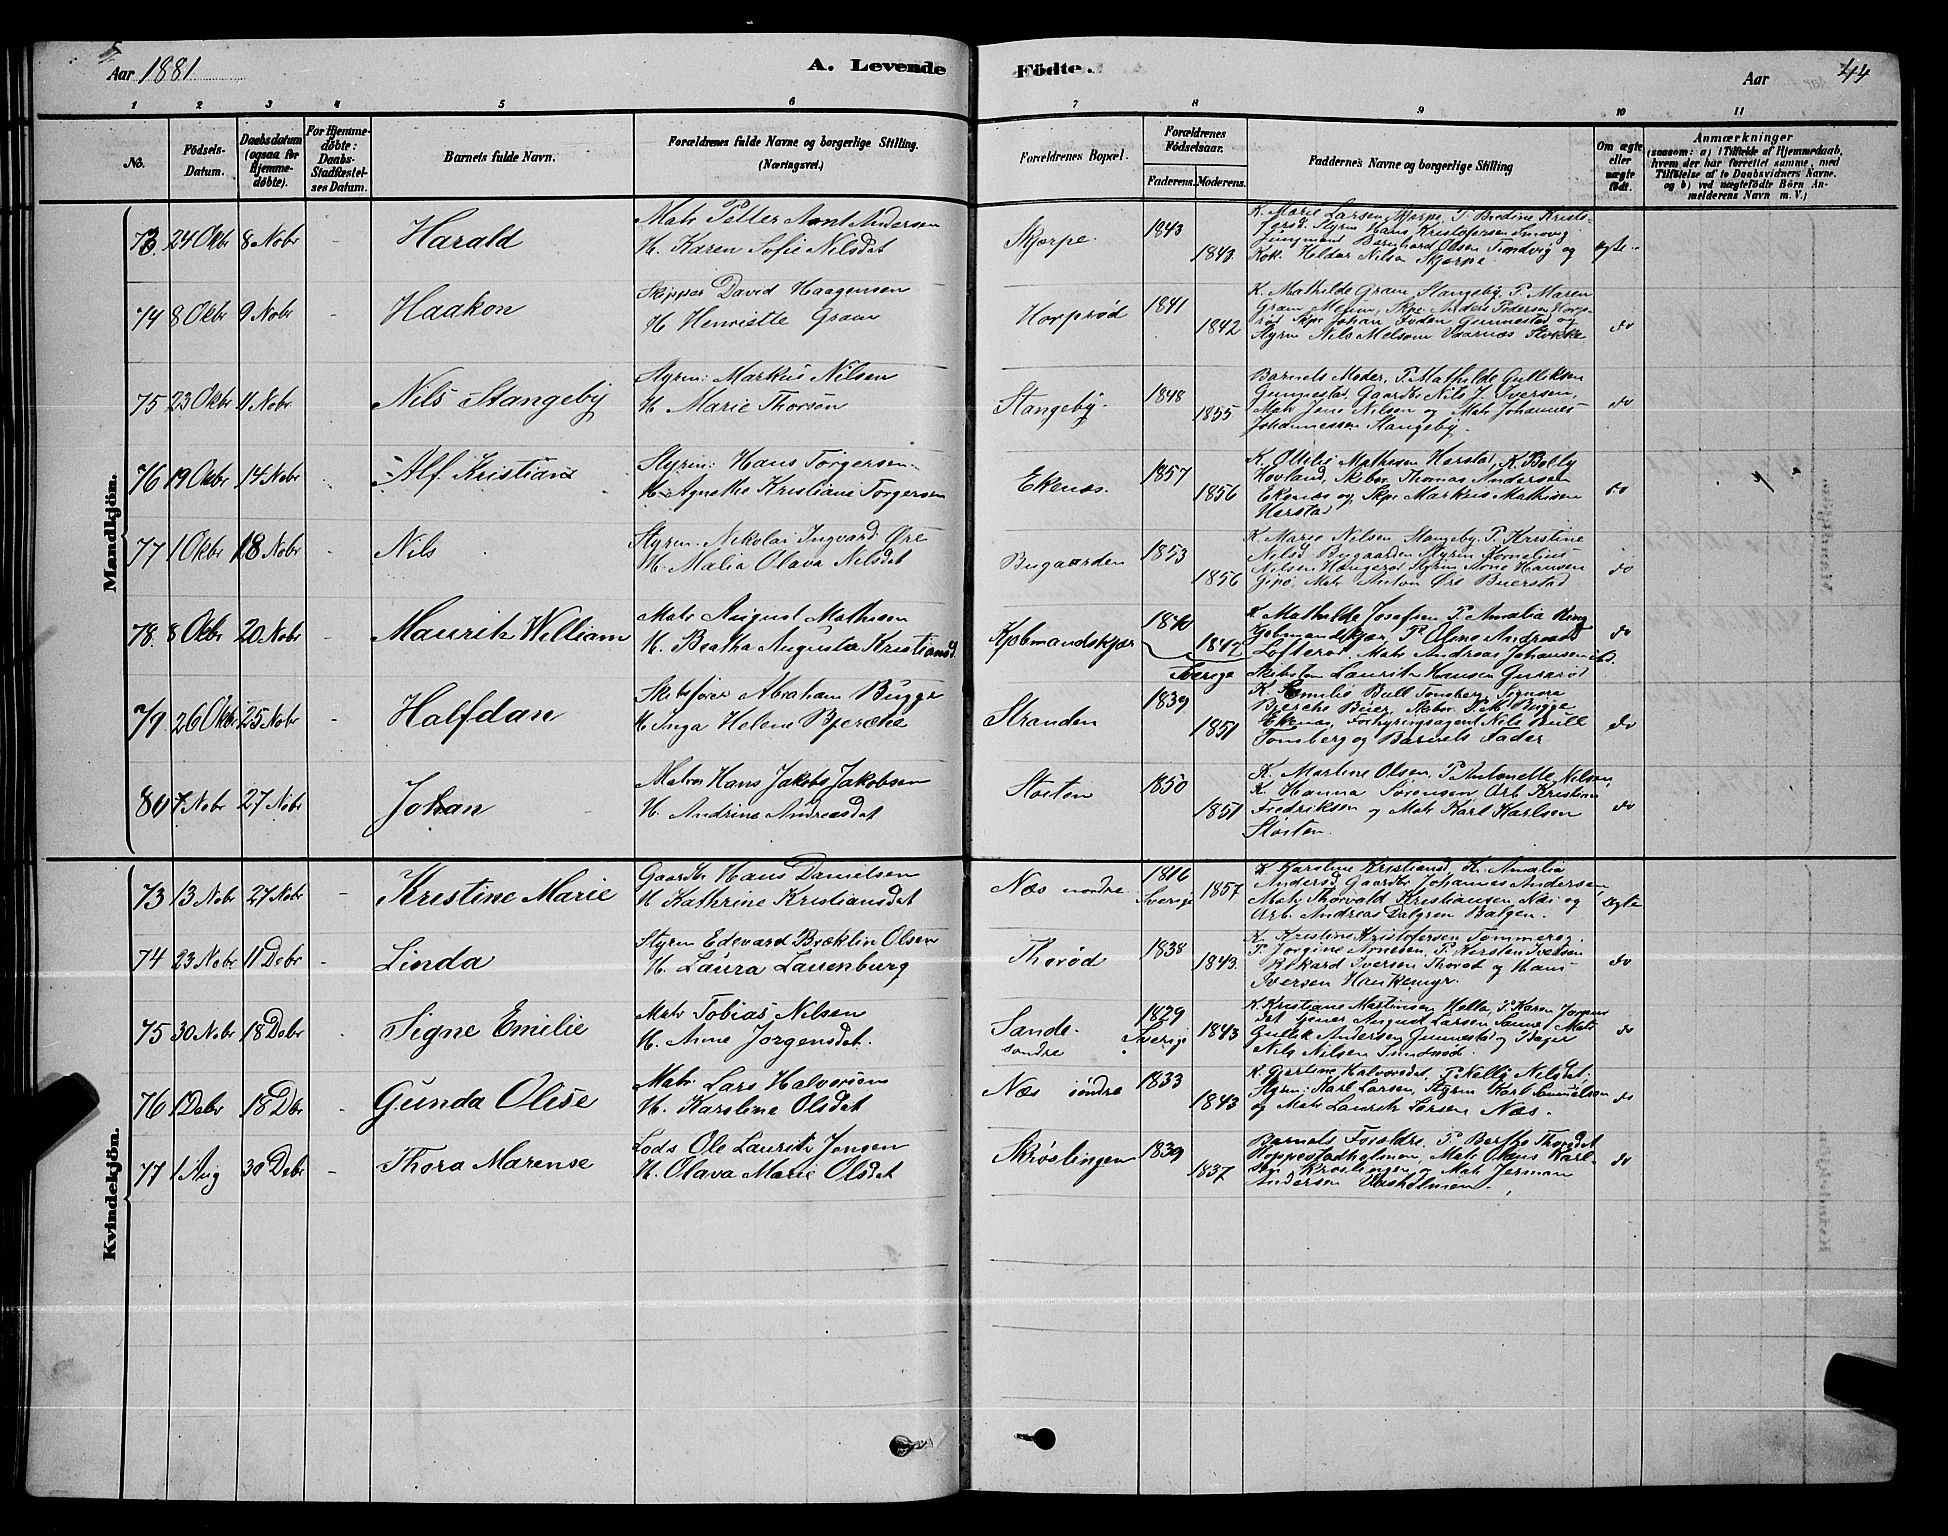 Aar 1881
A. Levende
Födte.
Aar
44
1 2 3 4 5 6 7 8 9 10 11
No.
Födsels-Datum.
Daabsdatum (ogsaa for Hjemme-döbte).
For Hjemme-döbte: Daabs-Stadfæstel-ses Datum.
Barnets fulde Navn.
Forældrenes fulde Navne og borgerlige Stilling. (Næringsvei.)
Forældrenes Bopæl.
Forældrenes Födselsaar.
Faderens. Moderens.
Faddernes Navne og borgerlige Stilling
Om ægte eller uægte födt.
Anmærkninger
(saasom: a) i Tilfælde af Hjemmedaab,
hvem der har forrettet samme, med
Tilföielse af to Daabsvidners Navne,
og b) ved uægtefödte Börn An-
melderens Navn m. V.)
Mandkjön.
73 24 Okbr 8 Nobr - Harald
Matr Petter Amt Andersen
H. Karen Sofie Nilsdat
Skjerpe. 1843 1843
K. Marie Larsen Skjerpe, P. Bredine Kristo-
fersd. Styrm Hans Kristofersen Smovig
Jungmand Bernhard Olsen Trondvig og
Kok Heldar Nilsen Skjerpe
ægte
74 8 Okbr 9 Nobr - Haakon
Skipper David Haagensen
H Henriette Gram
Horperöd 1841 1842
K. Mathilde Gram Stangeby, P. Maren
Gram Melsom, Skpr Anders Pedersen Horpe-
röd Skpr Johan Foden Gunnestad og
Styrm Nils Melsom Vaarnes Stokke
do
75 23 Okbr 11 Nobr - Nils Stangeby
Styrm: Markus Nilsen
H Marie Thorson
Stangeby. 1848 1855
Barnets Moder, P. Mathilde Gulliksen
Gunnestad Gaardbr Nils J. Iversen,
Matr Jens Nilsen og Matr Johannes
Johannessen Stangeby.
do
76 19 Okbr 14 Nobr - Alf Kristian
Styrm: Hans Torgersen
H. Agnethe Kristiane Torgersen
Ekenæs. 1857 1856
K. Ottilie Mathisen Harstad, K. Bolly
Hovland, Skibsr. Thomas Andersen
Ekenæs og Skpr Markus Mathisen
Harstad
do
77 1 Okbr 18 Nobr - Nils
Styrm. Nikolai Ingvard Öre
H. Malia Olava Nilsdat
Bugaarden 1853 1856
K Marie Nilsen Stangeby, P. Kristine
Nilsd. Bugaarden Styrm Kornelius
Nilsen Haugeröd Styrm Arne Hansen
Gipö, Matr Anton Öre Buerstad
do
78. 8 Okbr 20 Nobr - Maurits William
Matr August Mathisen
H. Beatha Augusta Kristiansd.
Kjöbmandskjær 1840 1847
Sverige
K Mathilde Josefsen P. Amalia Ring
Kjöbmandskjær, P. Oline Andreasd
Lofteröd, Matr Andreas Johansen ibd.
Skibstöm Laurits Hansen Guseröd
do
79 26 Okbr 25 Nobr - Halfdan
Skibsförer Abraham Bugge
H Inga Helene Bjercke
Stranden 1839 1851
K. Emilie Bull Tonsberg, Signora
Bjercke Buer, Skibsr. P. M. Bugge
Ekenæs, Forhyringsagent Nils Bull
Tonsberg og Barnets Fader
do
80 7 Nobr 27 Nobr - Johan
Matros Hans Jakob Jakobsen
H. Andrine Andreasdat
Stoiten 1850 1851
K. Martine Olsen, P Antonette Nilsen
K. Hanna Sörensen Arb Kristian
Fredriksen og Matr Karl Karlsen
Stoiten.
do
Kvindekjön.
73 13 Nobr 27 Nobr - Kristine Marie
Gaardbr Hans Danielsen
H Kathrine Kristiansdat
Næs nordre. 1846 Sverige 1857
K Karoline Kristiansd, K. Amalia
Andersd Gaardbr Johannes Andersen
Matr Thorvald Kristiansen Næs og
Arb. Andreas Dalgren Bolgen.
ægte
74 23 Nobr 11 Debr - Linda
Styrm Edevard Bræklin Olsen
H. Laura Lauenburg
Thoröd 1838 1843
K. Kristine Kristofersen Tommereg.
P. Jorgine Arnesen, P. Kirsten Iversen
Rikard Iversen Thoröd og Hans
Iversen Haukemyr.
do
75 30 Nobr 18 Debr - Signe Emilie
Matr Tobias Nilsen
H. Anne Jorgensdat.
Sande söndre 1829 Sverige 1843
K Kristiane Martinsen Hella, P. Karen Jorgens-
dat Tjener August Larsen Sande, Matr
Gullik Andersen Gunnestad og Bager
Nils Nilsen Sundröd.
do
76 1 Debr 18 Dbr - Gunda Olise
Matr Lars Halversen
H. Karoline Olsdat
Næs söndre 1833 1843
K. Gurline Halvorsdat, P Nelly Nilsdat.
Styrm: Karl Larsen, Styrm Karl Samuelson
og Matr Laurits Larsen Næs.
do
77 1 Aug 30 Debr - Thora Marense
Lods Ole Laurits Jensen
H. Olava Marie Olsdat
Skröslingen 1839 1837
Barnets Forældre, P. Berthe Thorsdat
Koppestadholmen, Matr Olaus Karl-
sen Kröslingen og Matr Jerman
Andersen Vasholmen.
do